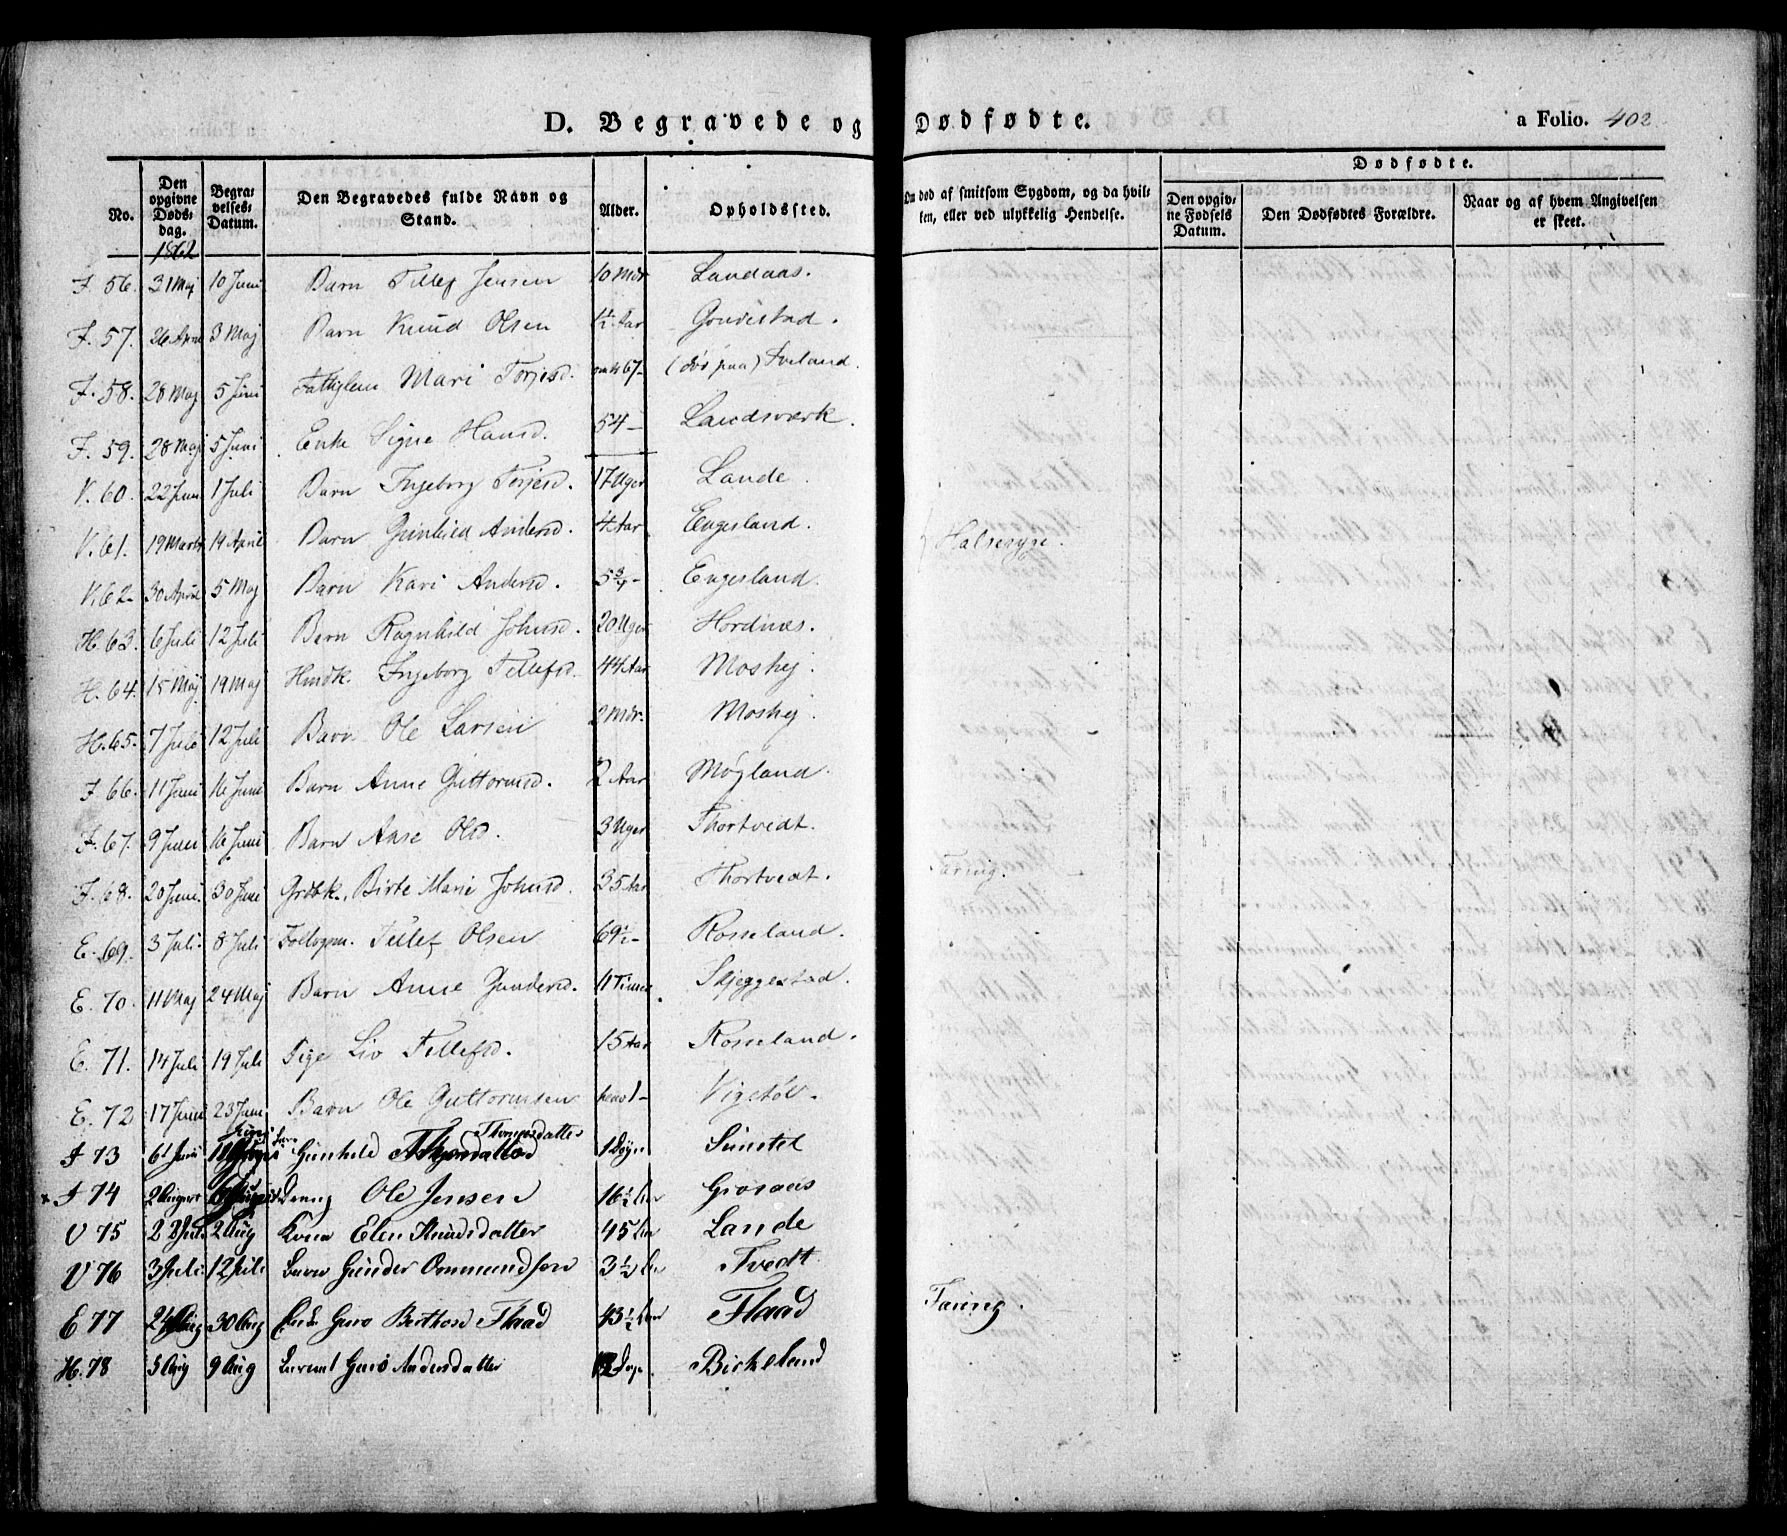 D. Begravede og Dødfødte. a Folio. 402
No. Den opgivne Døds-dag. Begravelses-Datum. Den Begravedes fulde Navn og Stand. Alder. Opholdssted. Om død af smitsom Sygdom, og da hvilken, eller ved ulykkelig Hendelse. Dødfødte. Den opgivne Fødsels Datum. Den Dødfødtes Forældre. Naar og af hvem Angivelsen er skeet.
1862
F. 56. 31 Maj 10 Juni Barn Tellef Jensen 10 Mdr Landaas.
F. 57. 26 April 3 Maj Barn Knud Olsen 1½ Aar
F. 58. 28 Maj 5 Juni Fattiglem Mari Torjesd. omtr 67 - (død paa) Iveland.
F. 59. 28 Maj 5 Juni Enke Signe Hansd. 54 - Landsværk.
V. 60. 22 Juni 1 Juli Barn Ingeborg Torjesd. 17 Uger Lande.
V. 61. 19 Marts 14 April Barn Gunhild Andersd. Aar Engesland. Halsesyge.
V. 62. 30 April 5 Maj Barn Kari Andersd. 5¾ - Engesland.
H. 63. 6 Juli 12 Juli Barn Ragnhild Johnsd. 20 Uger Hordnæs.
H. 64. 15 Maj 19 Maj Huusk. Ingeborg Tellefsd. 44 Aar Moshej.
H. 65. 7 Juli 12 Juli Barn Ole Larsen 2 Mdr. Moshej.
F. 66. 11 Juni 16 Juni Barn Anne Guttormsd. 2 Aar Møgland.
F. 67. 9 Juni 16 Juni Barn Anse Olsd. 3 Uger Thortvedt.
F. 68. 20 Juni 30 Juni Grdbk. Birte Marie Johnsd. 35 Aar Thortvedt. Tæring.
E. 69. 3 Juli 8 Juli Føllogsm. Tellef Olsen 69½ - Rosseland.
E. 70. 11 Maj 24 Maj Barn Anne Gundersd. 11 Timer Skjeggestad.
E. 71. 14 Juli 19 Juli Pige Liv Tellefsd. 15 Aar Rosseland.
E. 72 17 Juni 23 Juni Barn Ole Guttormsen henv 1 - Vigstøl.
F 73 6 Juni Gunhild Thomasdatter 1 Døgn Sunstøl
F 74 2 August Dreng Ole Jensen 16½ Aar Graosaas
V 75 22 Juli 2 Aug Kone Elen Knudsdatter 45 Aar Lande
V 76 3 Juli 12 Juli Barn Gunder Ommundsen 3½ Aar Tvedt
E 77 24 Aug 30 Aug Enke Guro Berthosd Flaad 43½ Aar Flaad Tæring.
H. 78 5 Aug 9 Aug Guro Andersdatter 12 Dage Birkeland